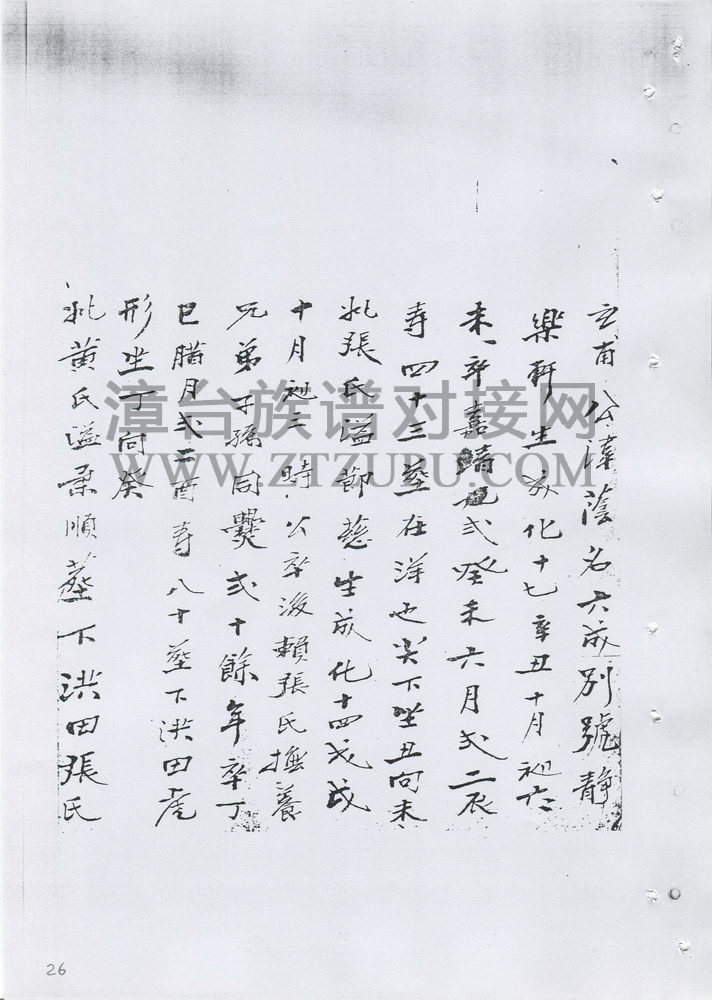 公諱蔭名六成別號靜
樂軒生成化十七辛丑十月初六
未卒嘉靖弍癸未六月弍二辰
壽四十三塟在洋也尖下坐丑向未
妣張氏謚節慈生成化十四戊戌
十月初二時公卒後賴張氏撫養
兄弟子孫同爨弍十餘年卒丁
巳腊月弍二酉壽八十塟下洪田虎
形坐丁向癸
妣黃氏謚柔順塟下洪田張氏
漳台族谱对接网
WWW.ZTZUPU.COM
26